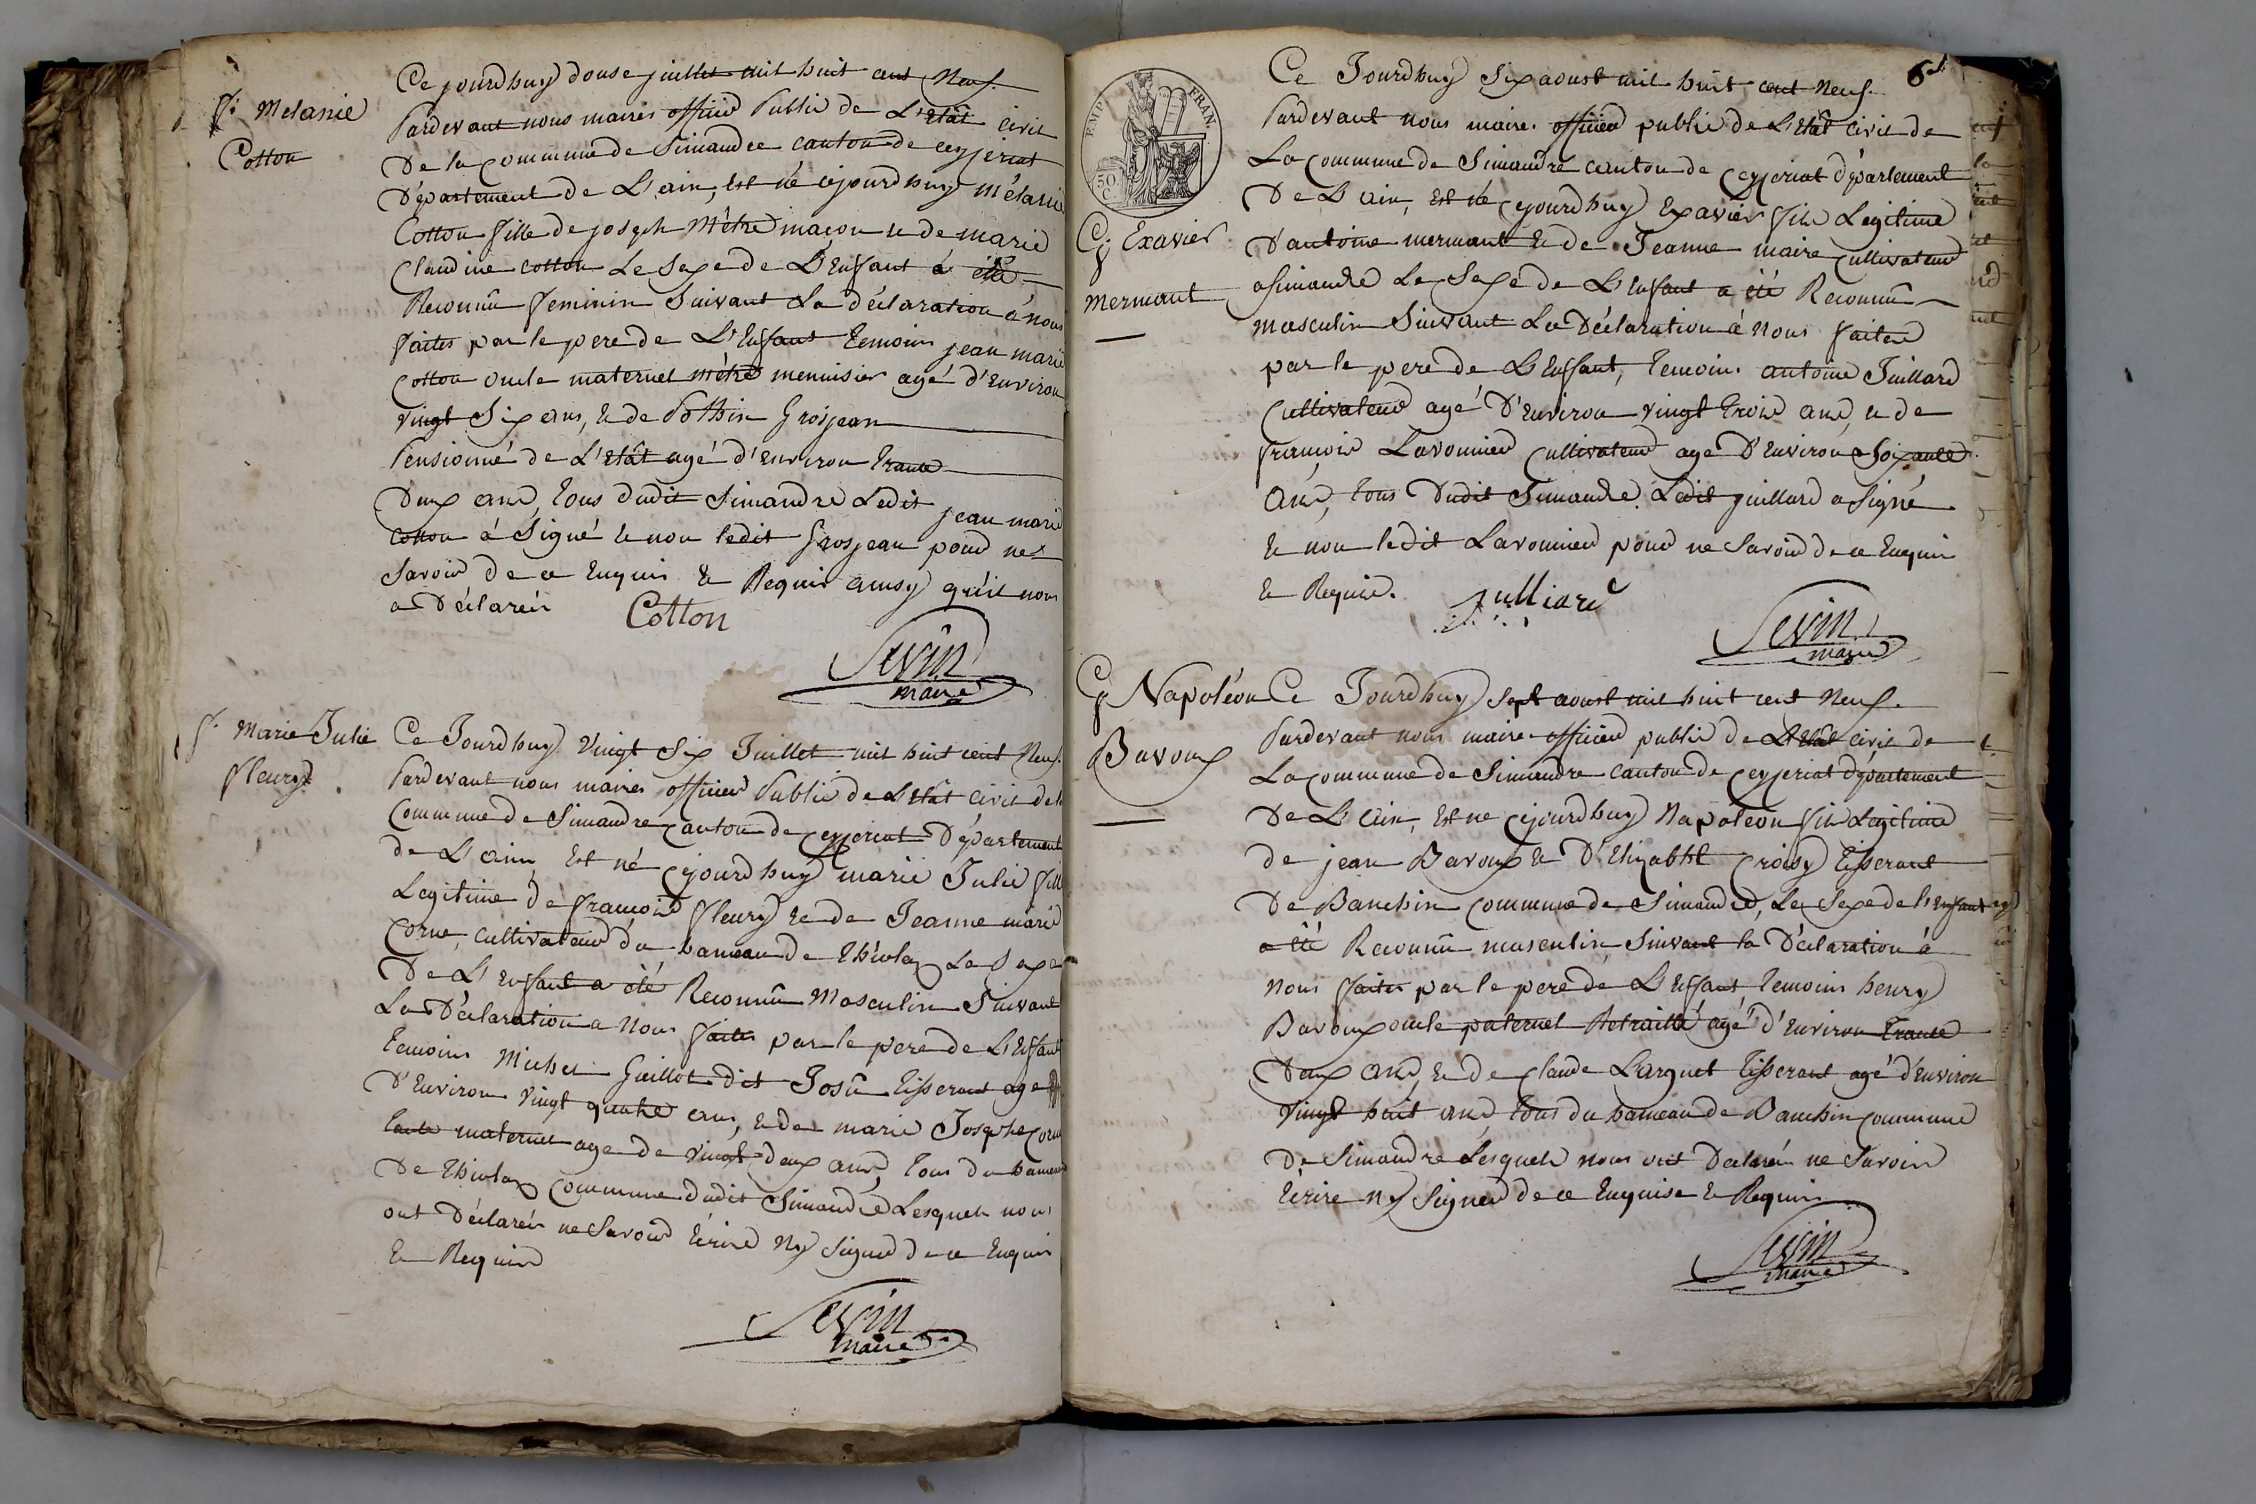 Ce jourdhuy douse juillet mil huit cent Neuf.
f. Melanie
Cotton
Pardevant nous maires officier Public de L'etât Civil
De la Commune de Simandre canton de ceyzeriat
Département de L'ain, est né cejourdhuy Mélanie
Cotton fille de joseph Métre maçon et de marie
Claudine cotton Le Sexe de L'Enfant à été
Reconnû feminin Suivant La déclaration à nous
faites par le pere de L'Enfant temoins jean marie
Cotton oncle maternel métre menuisier agé d'Environ
vingt Six ans, & de Pothin Grosjean
Pensionné de L'etât agé d'environ trante
Deux ans, tous dudit Simandre Ledit jean marie
Cotton à Signé & non ledit Grosjean pour ne
Savoir de ce Enquis & Requis ainsy qu'il nous
a Déclarér
Cotton
Sevin
maire
f. Marie Julie
fleury
Ce Jourdhuy Vingt Six Juillet mil huit cent Neuf.
Pardevant nous maires officier Public de L'etât Civil de la
Commune de Simandre canton de ceyzeriat Département
de L'ain, Est né cejourdhuy marie Julie fille
Legitime de françois fleury & de Jeanne marie
Corne, cultivateur du hameau de Thiolay Le Sexe
De L'Enfant a été Reconnû Masculin Suivant
La Déclaration a Nous faites par le pere de L'Enfant
temoins Michel Guillot dit Josû tisserant agé
D'Environ vingt quatre ans, & de marie Josephe Corne
tante maternel age de vingt deux ans, tous du hameau
De Thiolay Commune dudit Simandre Lesquels nous
ont Déclarér ne Savoir Ecrire Ny Signer de ce Enquis
& Requis
Sevin
maire
6.
EMP. FRAN.
50 C.
Ce Jourdhuy Six aoust mil huit cent Neuf.
Pardevant nous maire officier public de L'etât civil de
La Commune de Simandre canton de Ceyzeriat département
De L'ain, est né cejourdhuy Exavier fils Legitime
G. Exavier
Mermant
D'antoine mermant & de Jeanne maire cultivateur
a Simandre Le Sexe de L'Enfant a été Reconnû
masculin Suivant La Déclaration à Nous faites
par le pere de L'Enfant, temoins antoine Juillard
Cultivateur agé D'Environ vingt trois ans, & de
françois Lavonnier Cultivateur agé D'Environ Soixante
Ans, tous Dudit Simandre. Ledit juillard a Signé
& non ledit Lavonnier pour ne Savoir de ce Enquis
& Requis.
Julliard
Sevin
maire
G Napoléon
Bavoux
Ce Jourdhuy Sept aoust mil huit cent Neuf.
Pardevant nous maire officier public de L'etât civil de
La Commune de Simandre canton de Ceyzeriat département
De L'ain, Est né cejourdhuy Napoléon fils Legitime
de jean Bavoux & D'Elizabtt Croisy tisserant
De Banchin Commune de Simandre, Le Sexe de L'Enfant
a été Reconnû masculin Suivant la Déclaration à
nous faites par le pere de L'Enfant, temoins henry
Bavoux oncle paternel Retraitté agé d'Environ trante
Deux ans, & de Claude Larguet tisserant agé d'Environ
vingt huit ans, tous du hameau de Banchin Commune
De Simandre Lesquels nous ont Déclarér ne Savoir
Ecrire Ny Signer de ce Enquise & Requis
Sevin
maire